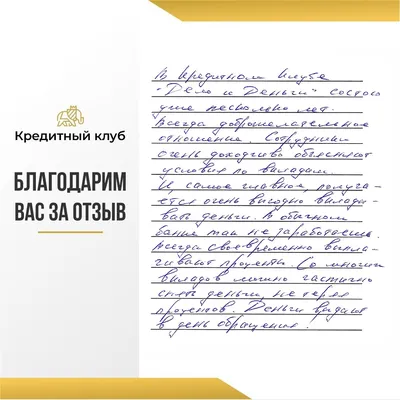 Кредитный клуб
БЛАГОДАРИМ
ВАС ЗА ОТЗЫВ
В Кредитном Клубе
"Дело и Деньги" состою
уже несколько лет.
Всегда доброжелательное
отношение. Сотрудники
очень доходчиво объясняют
условия по вкладам.
И, самое главное, получа-
ется очень выгодно вклады-
вать деньги. В обычном
банке так не заработаешь.
Всегда своевременно выпла-
чивают проценты. Со многих
вкладов можно частично
снять деньги, не теряя
процентов. Деньги выдают
в день обращения.